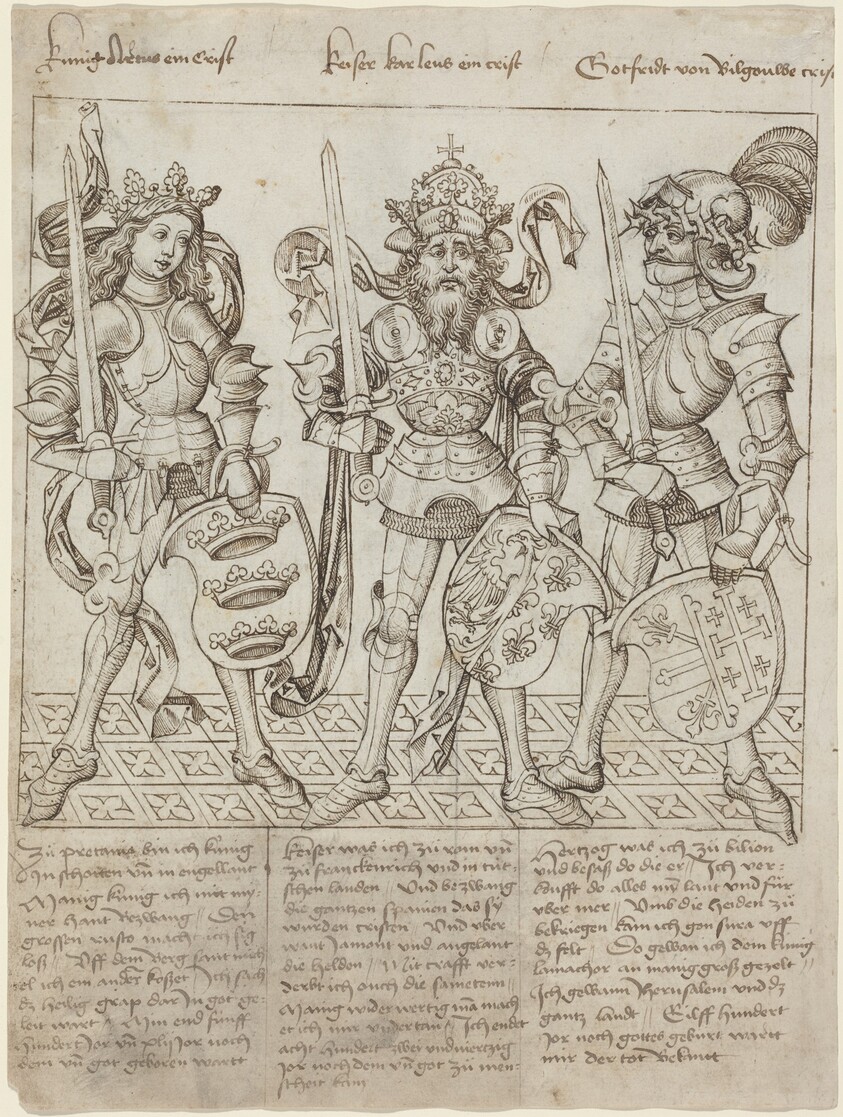 Kunig Artus ein Crist
Keiser karleus ein crist
Gotfridt von Bilgouwe cris
Zu Pretania bin ich kunig
In schotten vn in engellant
Manig kunig ich mit my-
ner hant Bezwang Den
grossen rusto macht ich sig
loß Vff dem Berg sant mich
el ich ein ander koßet Ich sach
dz heilig grap dar In got ge-
leit wart Min end funff
hundert Jor vn xlij Jor noch
dem vn got geboren wartt
Keiser was ich zu rom vn
zu franckenrich und in tut-
schen landen Vnd bezwang
die gantzen spanien das sy
wurden cristen Vnd vber
want Jamont und angelant
die helden Mit crafft ver-
derbt ich ouch die
Manig wider wertig man mach
et ich mir vndertan Ich endet
acht hundert zwei und viertzig
Jor noch dem vn got zu men-
scheit kam
Hertzog was ich zu bilion
und besaß do die er Ich ver-
koufft do alles min lant und für
vber mer Vmb die heiden zu
bekriegen kam ich gon sura vff
dz felt Do gewan ich dem kunig
an manig groß gezelt
Ich gewann Jherusalem und dz
gantz landt Eilff hundert
Jor noch gottes geburt wartt
mir der tot Bekant